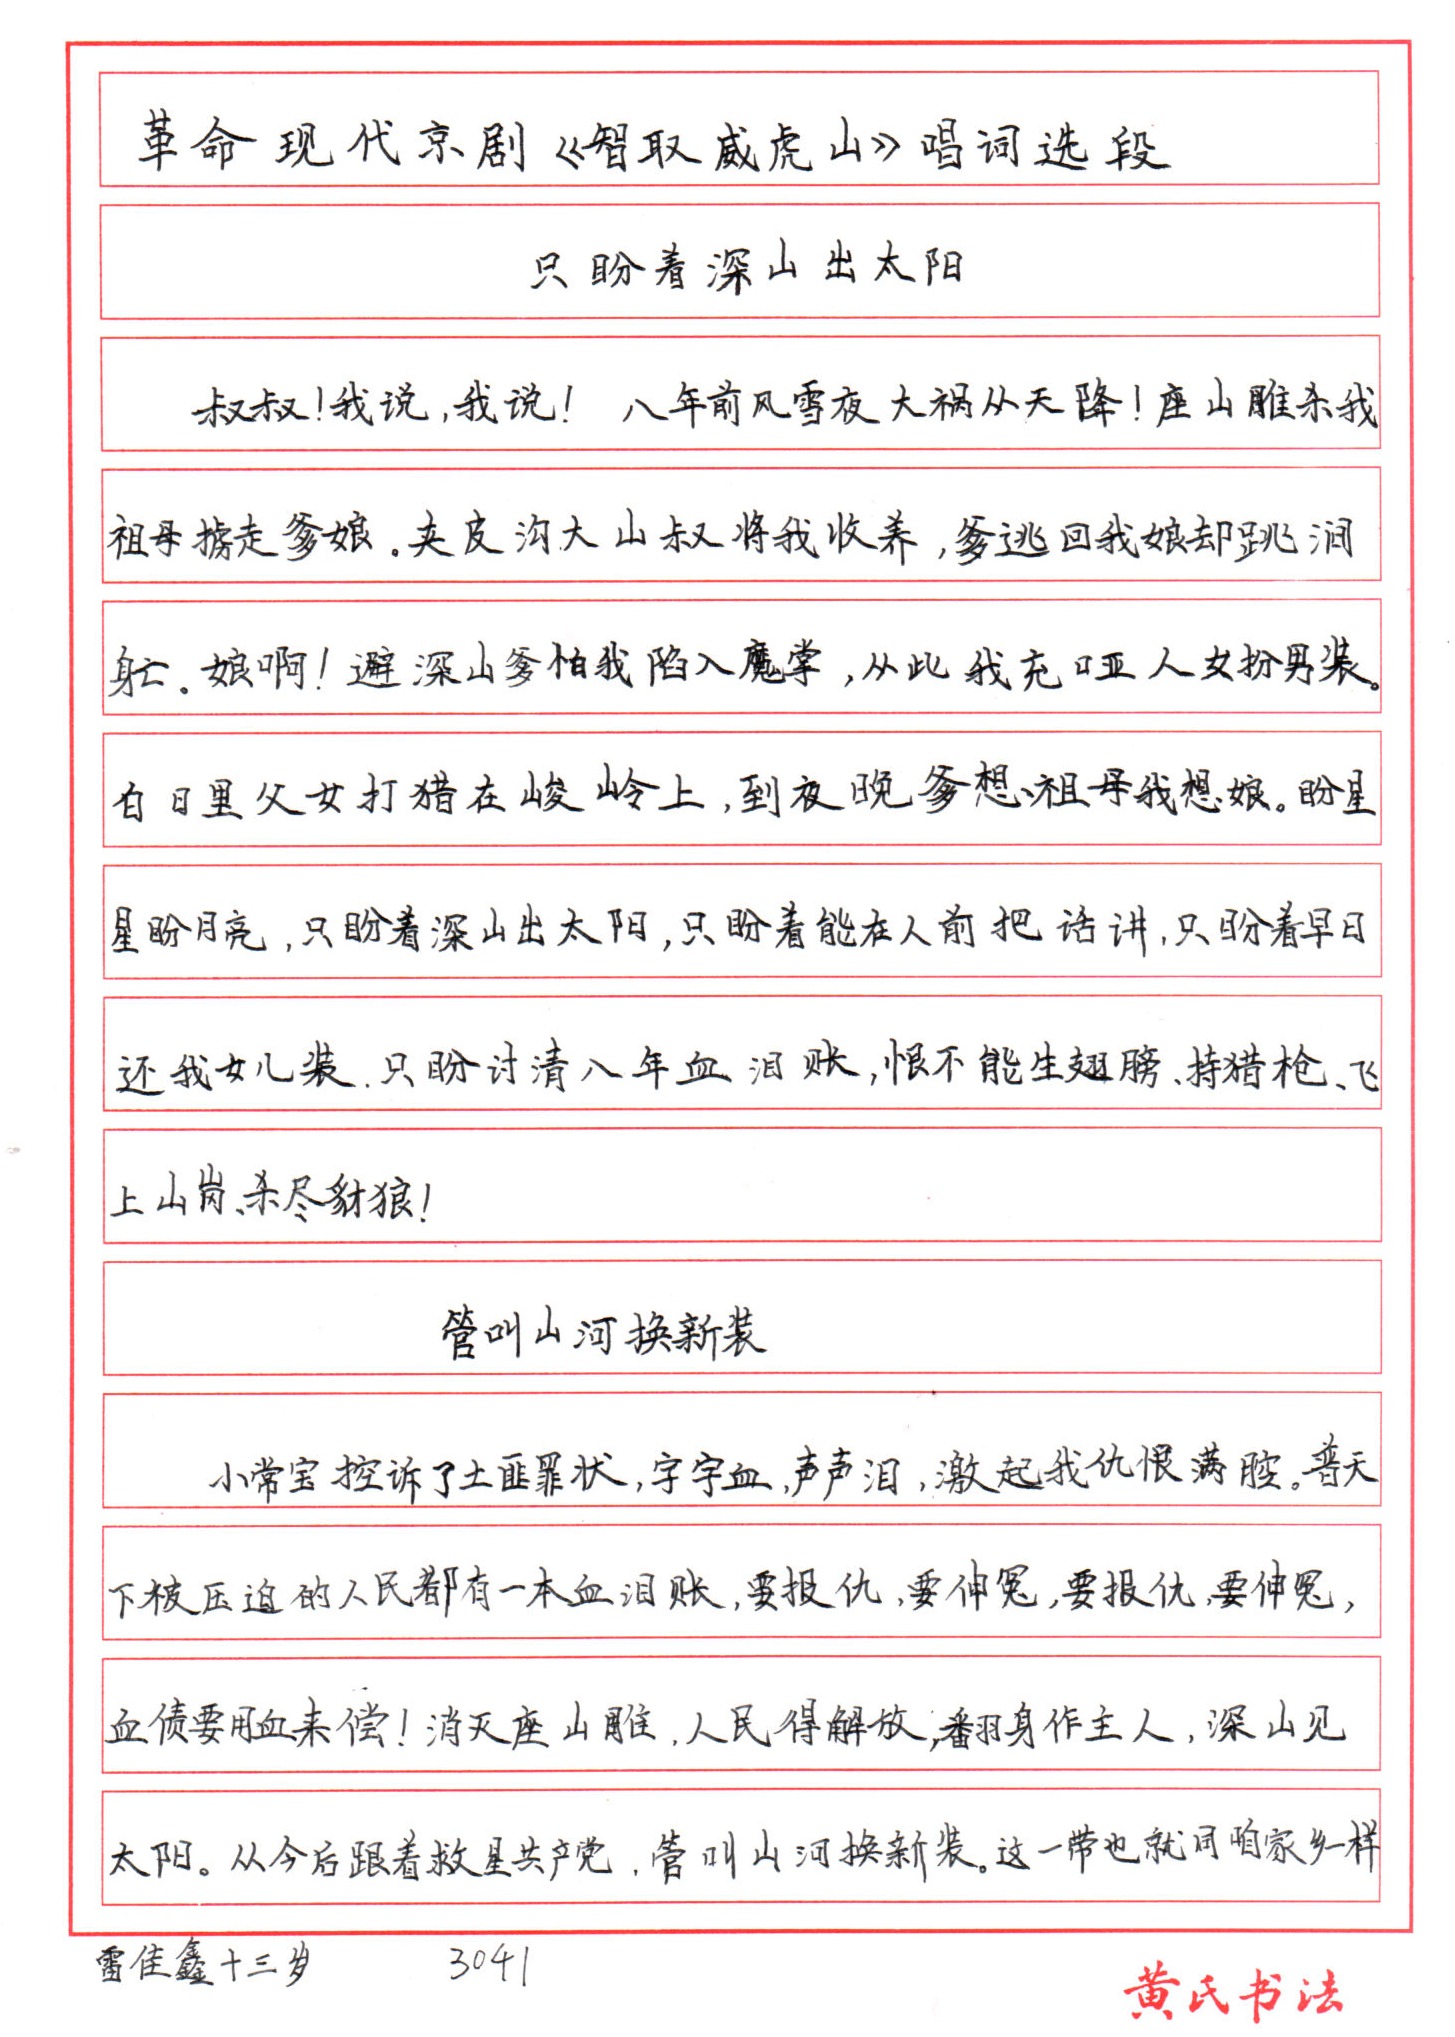 革命现代京剧《智取威虎山》唱词选段
只盼着深山出太阳
叔叔!我说,我说! 八年前风雪夜大祸从天降!座山雕杀我
祖母掳走爹娘。夹皮沟大山叔将我收养,爹逃回我娘却跳涧
身亡。娘啊!避深山爹怕我陷入魔掌,从此我充哑人女扮男装。
白日里父女打猎在峻岭上,到夜晚爹想祖母我想娘。盼星
星盼月亮,只盼着深山出太阳,只盼着能在人前把话讲,只盼着早日
还我女儿装.只盼讨清八年血泪账,恨不能生翅膀、持猎枪、飞
上山岗、杀尽豺狼!
管叫山河换新装
小常宝控诉了土匪罪状,字字血,声声泪,激起我仇恨满腔。普天
下被压迫的人民都有一本血泪账,要报仇,要伸冤,要报仇,要伸冤,
血债要用血来偿!消灭座山雕,人民得解放,翻身作主人,深山见
太阳。从今后跟着救星共产党,管叫山河换新装。这一带也就同咱家乡一样
雷佳鑫十三岁 3041
黄氏书法